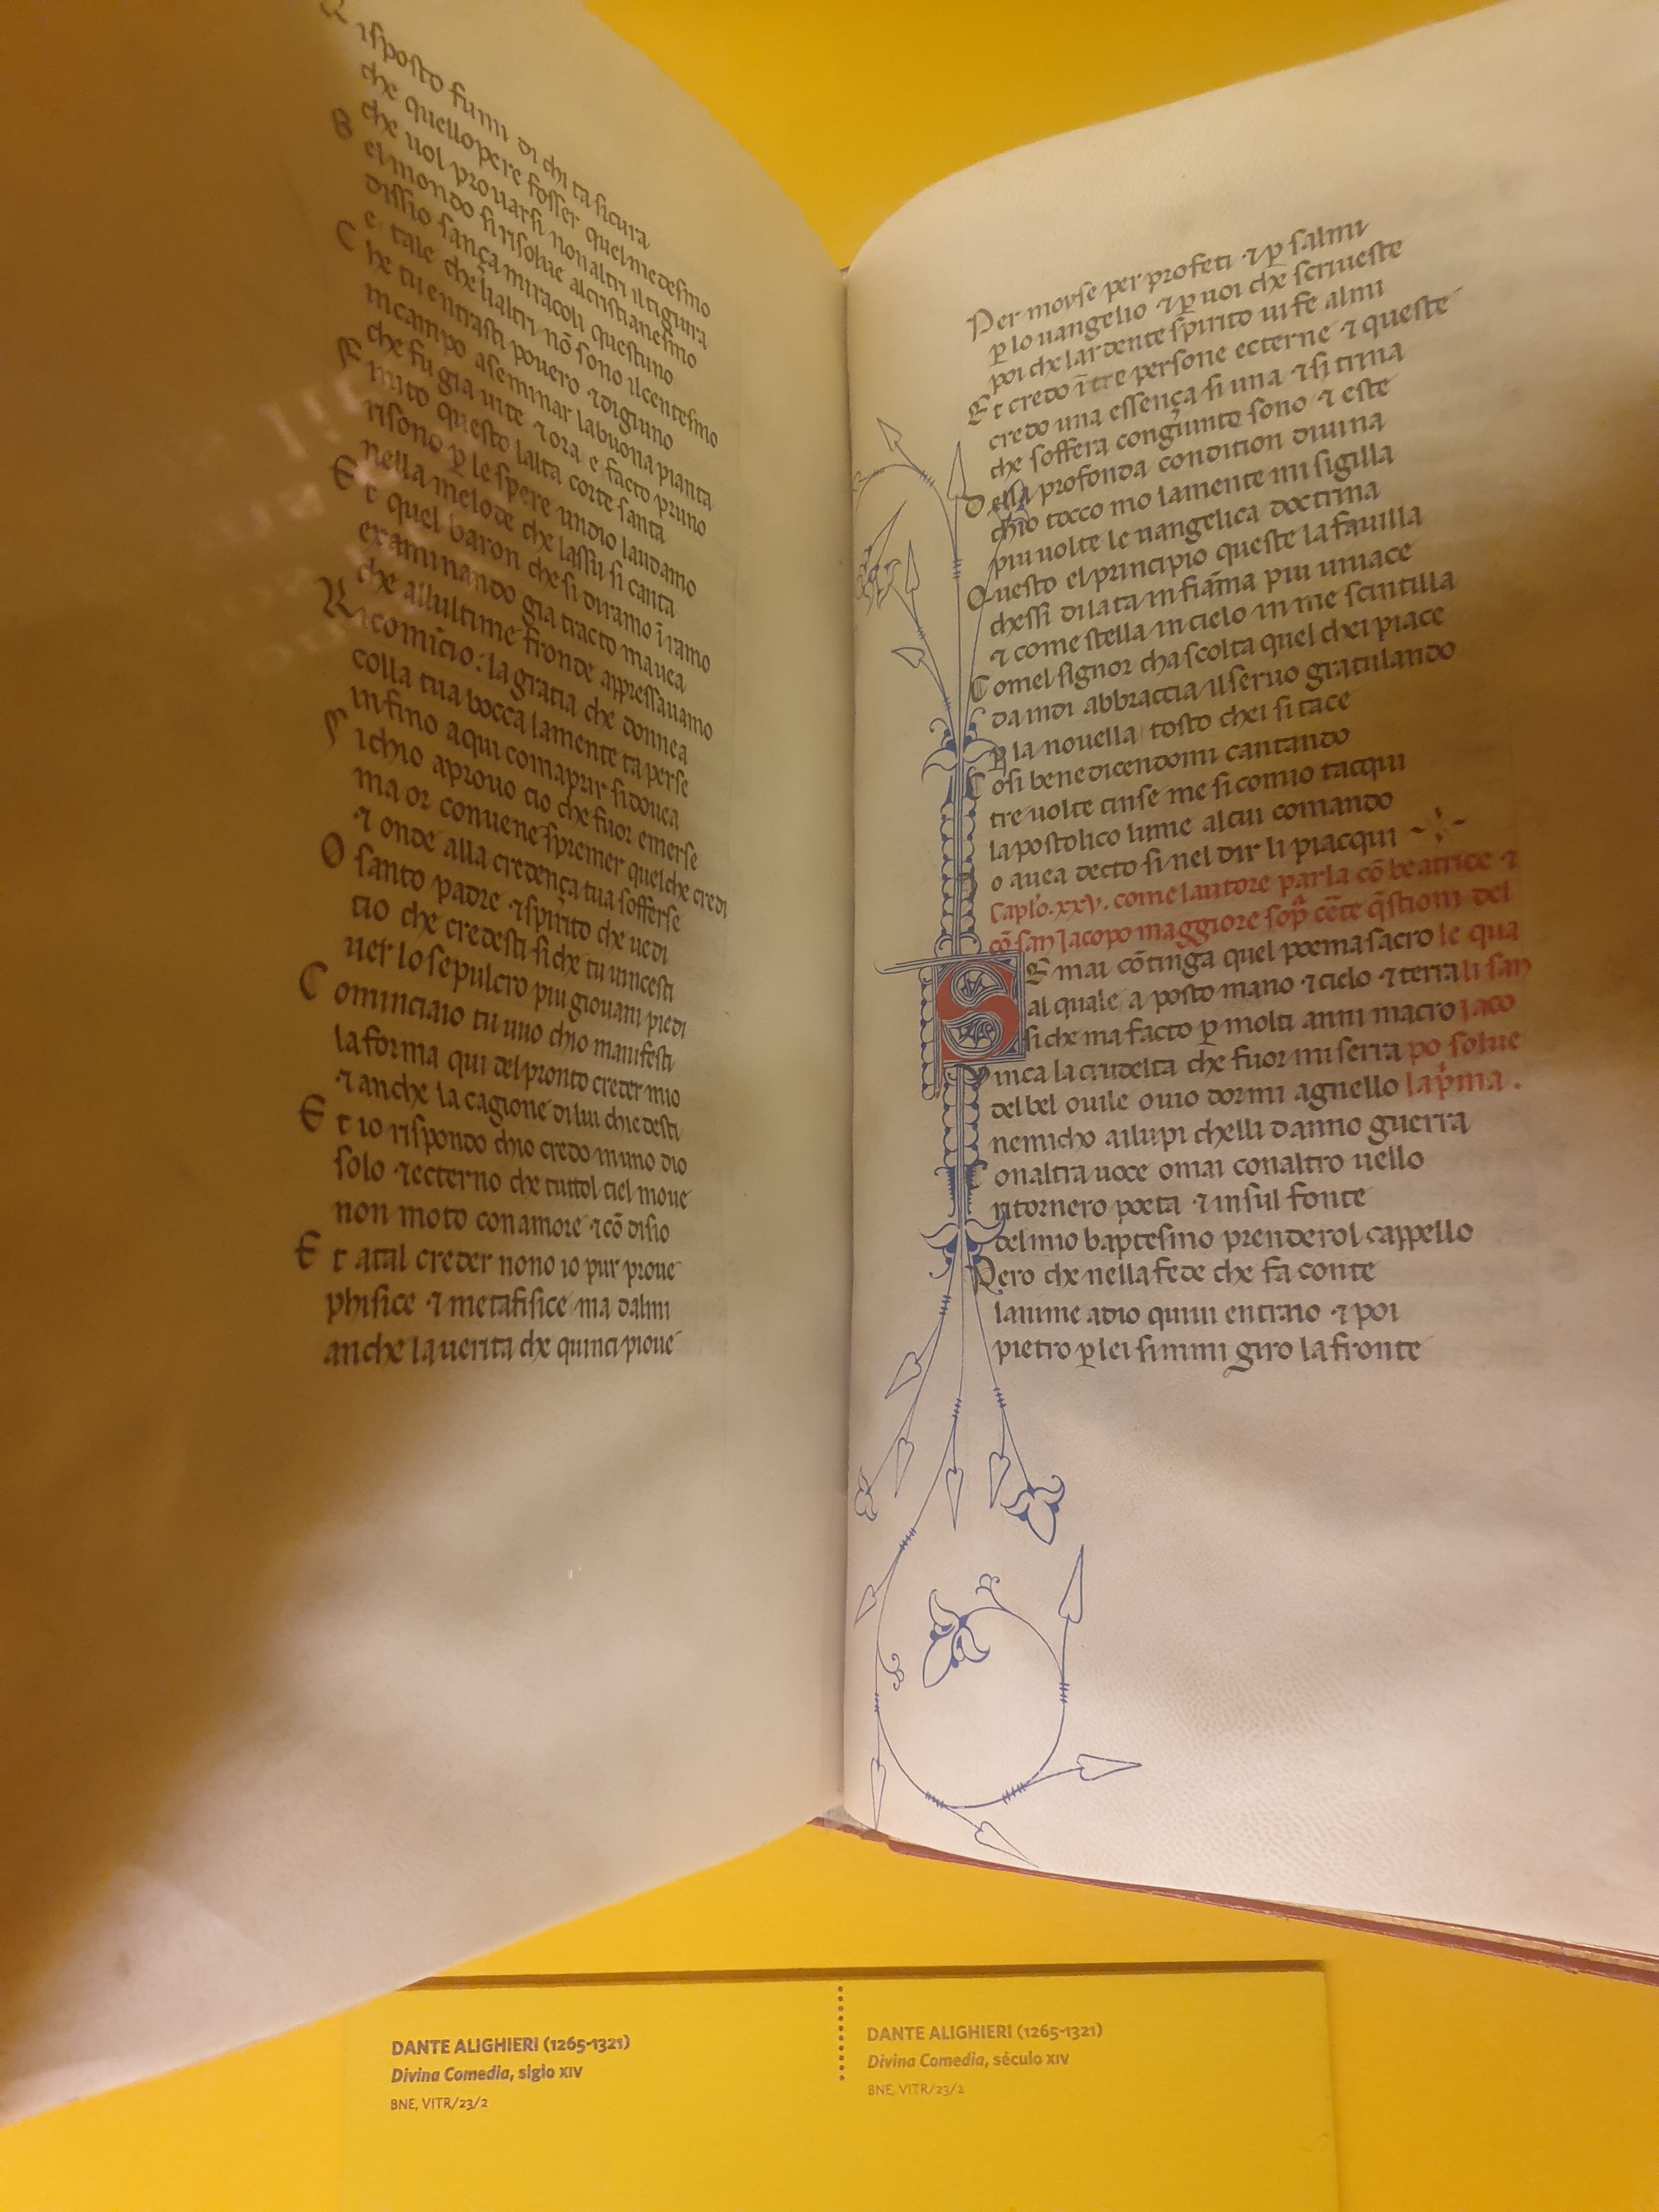 Risposto fummi di chi ta sicura
che quellopere fosser quel medesmo
che uol prouarsi non altri il ti giura
S el mondo si risolue al cristianesmo
dissio sança miracoli questuno
e tale che li altri nō sono il centesmo
C he tu entrasti pouero ⁊ digiuno
in campo a seminar la buona pianta
che fu gia uite ⁊ ora e facto pruno
F inito questo lalta corte santa
risono ꝑ le spere un dio laudamo
nella melode che lassu si canta
E t quel baron che si di ramo ī ramo
examinando gia tracto mauea
che allultime fronde appressauamo
R icomīcio: la gratia che donnea
colla tua bocca la mente taperse
infino a qui comaprir si douea
S ichio aprouo cio che fuor emerse
ma or conuene spremer quel che credi
⁊ onde alla credença tua sofferse
O santo padre ⁊ spirito che uedi
cio che credesti si che tu uincesti
uer lo sepulcro piu giouani piedi
C ominciaio tu uuo chio manifesti
la forma qui del pronto creder mio
⁊ anche la cagione di lui chiedesti
E t io rispondo chio credo in uno dio
solo ⁊ ecterno che tuttol ciel moue
non moto con amore ⁊ cō disio
E t a tal creder non o io pur proue
phisice ⁊ metafisice ma dalmi
anche la uerita che quinci pioue
Per moyse per profeti ⁊ ꝑ salmi
ꝑ lo uangelio ⁊ ꝑ uoi che scriueste
poi che lardente spirito ui fe almi
Et credo ī tre persone ecterne ⁊ queste
credo una essença si una ⁊ si trina
che soffera congiunto sono ⁊ este
Della profonda condition diuina
chio tocco mo la mente mi sigilla
piu uolte le uangelica doctrina
Questo el principio queste la fauilla
chessi dilata in fiāma piu uiuace
⁊ come stella in cielo in me scintilla
Comel signor chascolta quel chei piace
da indi abbraccia il seruo gratulando
ꝑ la nouella tosto chei si tace
Cosi benedicendomi cantando
tre uolte cinse me si comio tacqui
lapostolico lume al cui comando
o auea decto si nel dir li piacqui
Caplo. xxv. come lautore parla cō beatrice ⁊
cō san Jacopo maggiore sopᵃ cēte q̄stioni del
SE mai cōtinga quel poema sacro le qua
al quale a posto mano ⁊ cielo ⁊ terra li san
si che ma facto ꝑ molti anni macro Jaco
Vinca la crudelta che fuor mi serra po solue
del bel ouile ouio dormi agnello la pima.
nemicho ai lupi chelli danno guerra
Con altra uoce omai con altro uello
ritornero poeta ⁊ in sul fonte
del mio baptesmo prenderol cappello
Pero che nella fede che fa conte
lanime a dio quiui entraio ⁊ poi
pietro ꝑ lei si mmi giro la fronte
DANTE ALIGHIERI (1265-1321)
Divina Comedia, siglo XIV
BNE, VITR/23/2
DANTE ALIGHIERI (1265-1321)
Divina Comedia, século XIV
BNE, VITR/23/2